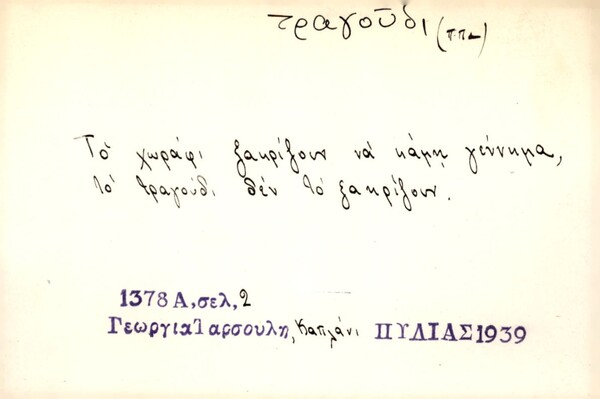 τραγοῦδι (π.π.)
Τὸ χωράφι ξακρίζουν νὰ κάμῃ γέννημα,
τὸ τραγούδι δέν τὸ ξακρίζουν.
1378 Α, σελ, 2
Γεωργια Ταρσουλη, Καπλάνι ΠΥΛΙΑΣ 1939